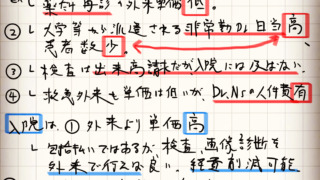 └ 薬剤毎診で外来単価低。
② └ 大学等から派遣される非常勤Dr.日当高
患者数少。
③ └ 検査は出来高請求だが入院には及ばない。
④ └ 救急外来も単価は低いが、Dr,Nrの人件費有
入院は、① 外来より単価高
└ 包括払いではあるが 検査、画像診断を
外来で行えば良い、経費削減可能